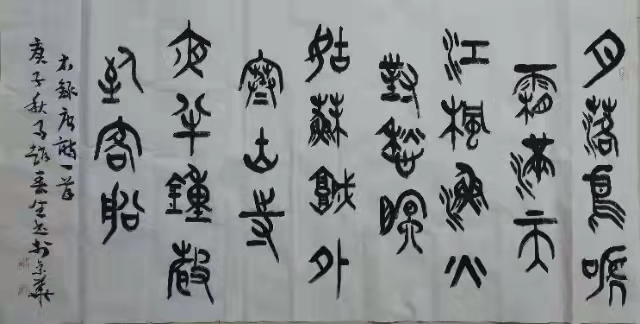 月落烏啼
霜滿天
江楓漁火
對愁眠
姑蘇城外
寒山寺
夜半鐘聲
到客船
右錄唐詩一首
庚子秋月趙於京華